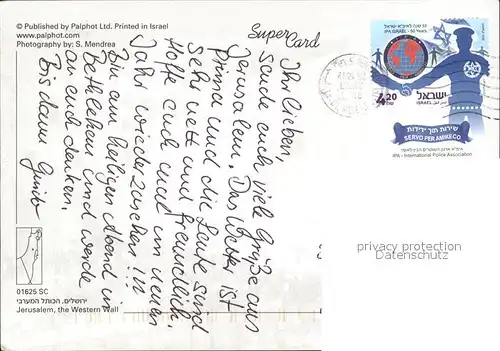 © Published by Palphot Ltd. Printed in Israel
www.palphot.com
Photography by: S. Mendrea
Super Card
Ihr Lieben,
sende euch viel Grüße aus
Jerusalem. Das Wetter ist
prima und die Leute sind
sehr nett und freundlich.
Hoffe euch mal im neuen
Jahr wiederzusehen!!!
Bin am heiligen Abend in
Bethlehem und werde
an euch denken.
Bis dann
01625 SC
ירושלים, הכותל המערבי
Jerusalem, the Western Wall
50 שנה לאיפ"א ישראל
IPA ISRAEL - 50 Years
4.20
ישראל
ISRAEL
שירות תוך ידידות
SERVO PER AMIKECO
IPA - International Police Association
privacy protection
Datenschutz